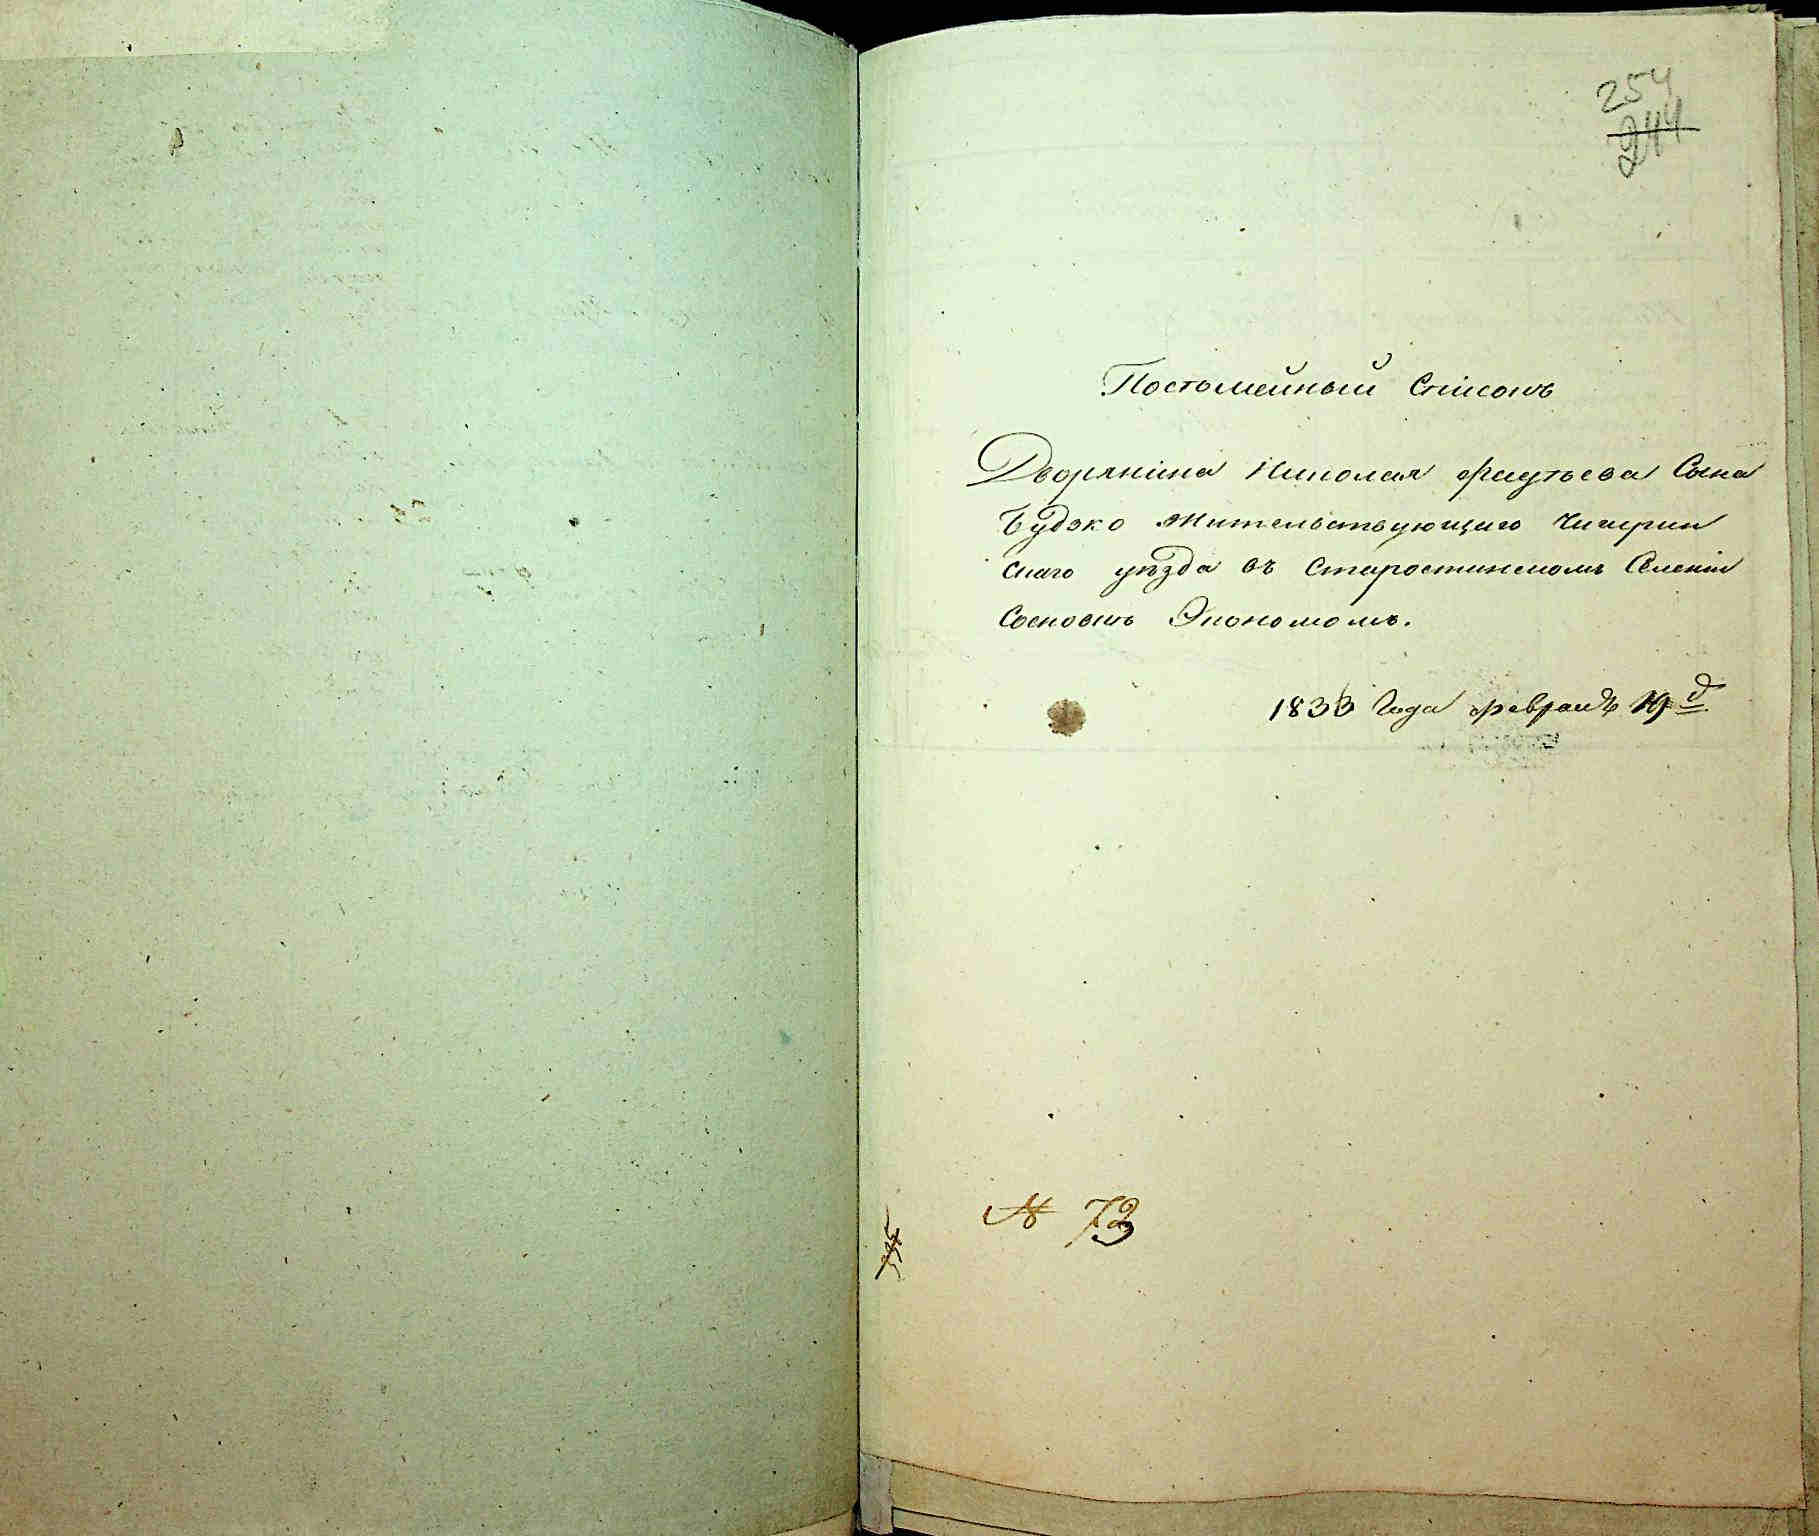 254
244
Постомейный Список
Дворянина Николая Фаутьева Сына
Будзко Жительствующаго Чигирин
скаго уѣзда въ Старостинскомъ Селеніи
Сосновкѣ Экономомъ.
1833 Года февраля 19 д
№ 73